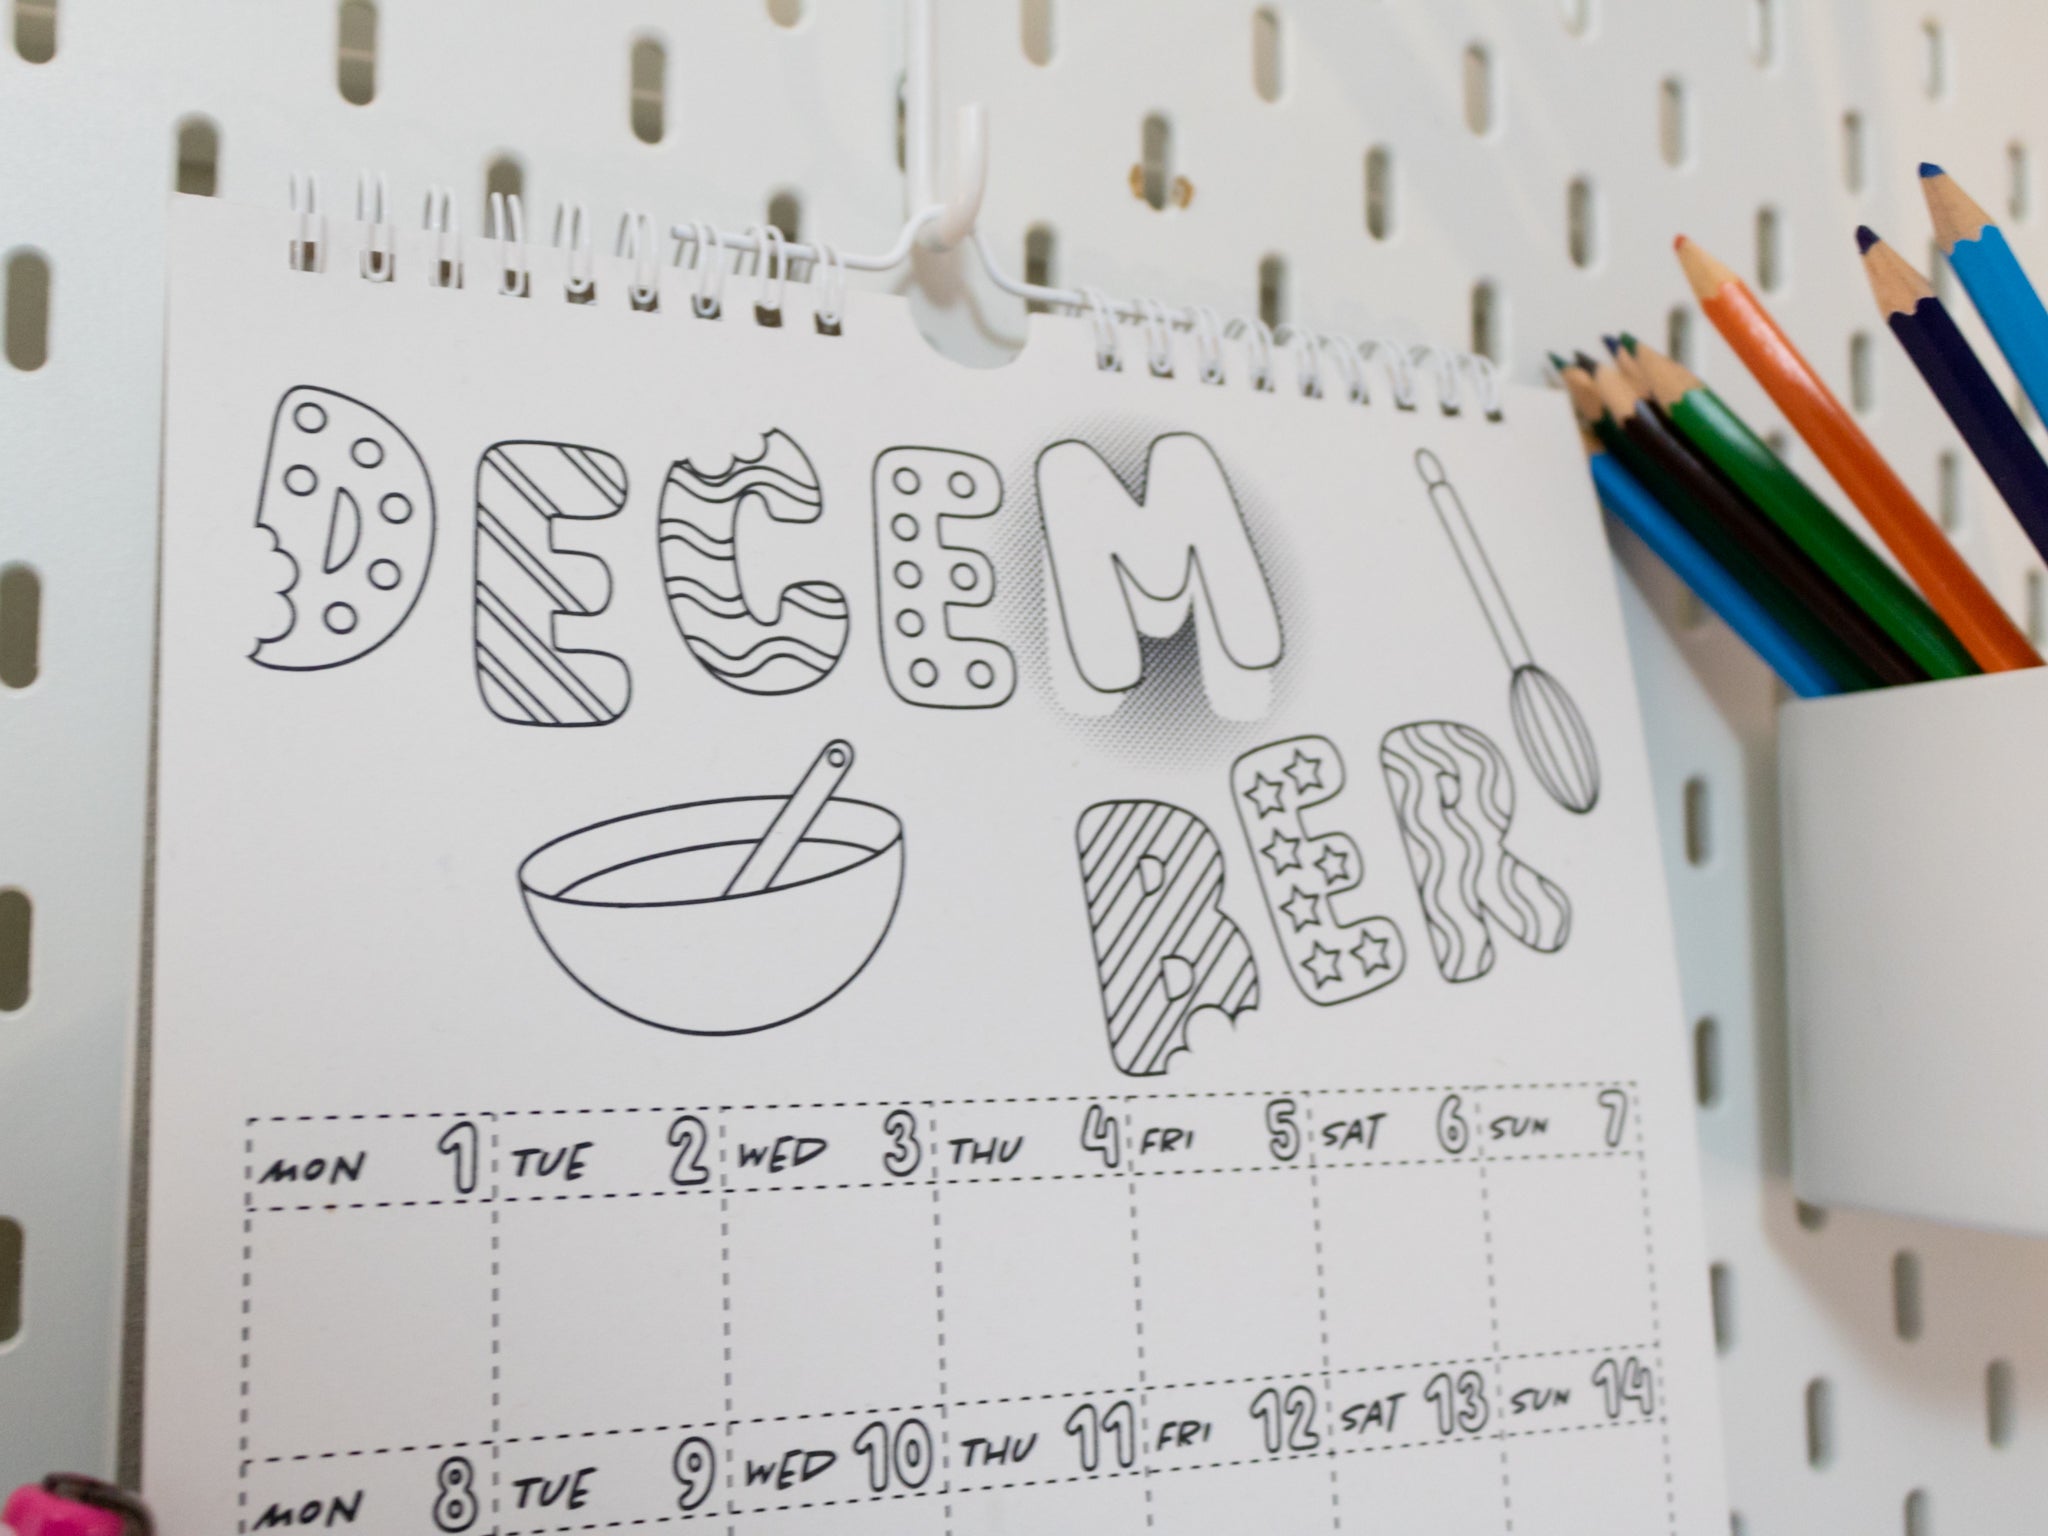 DECEM
BER
MON 1 TUE 2 WED 3 THU 4 FRI 5 SAT 6 SUN 7
MON 8 TUE 9 WED 10 THU 11 FRI 12 SAT 13 SUN 14